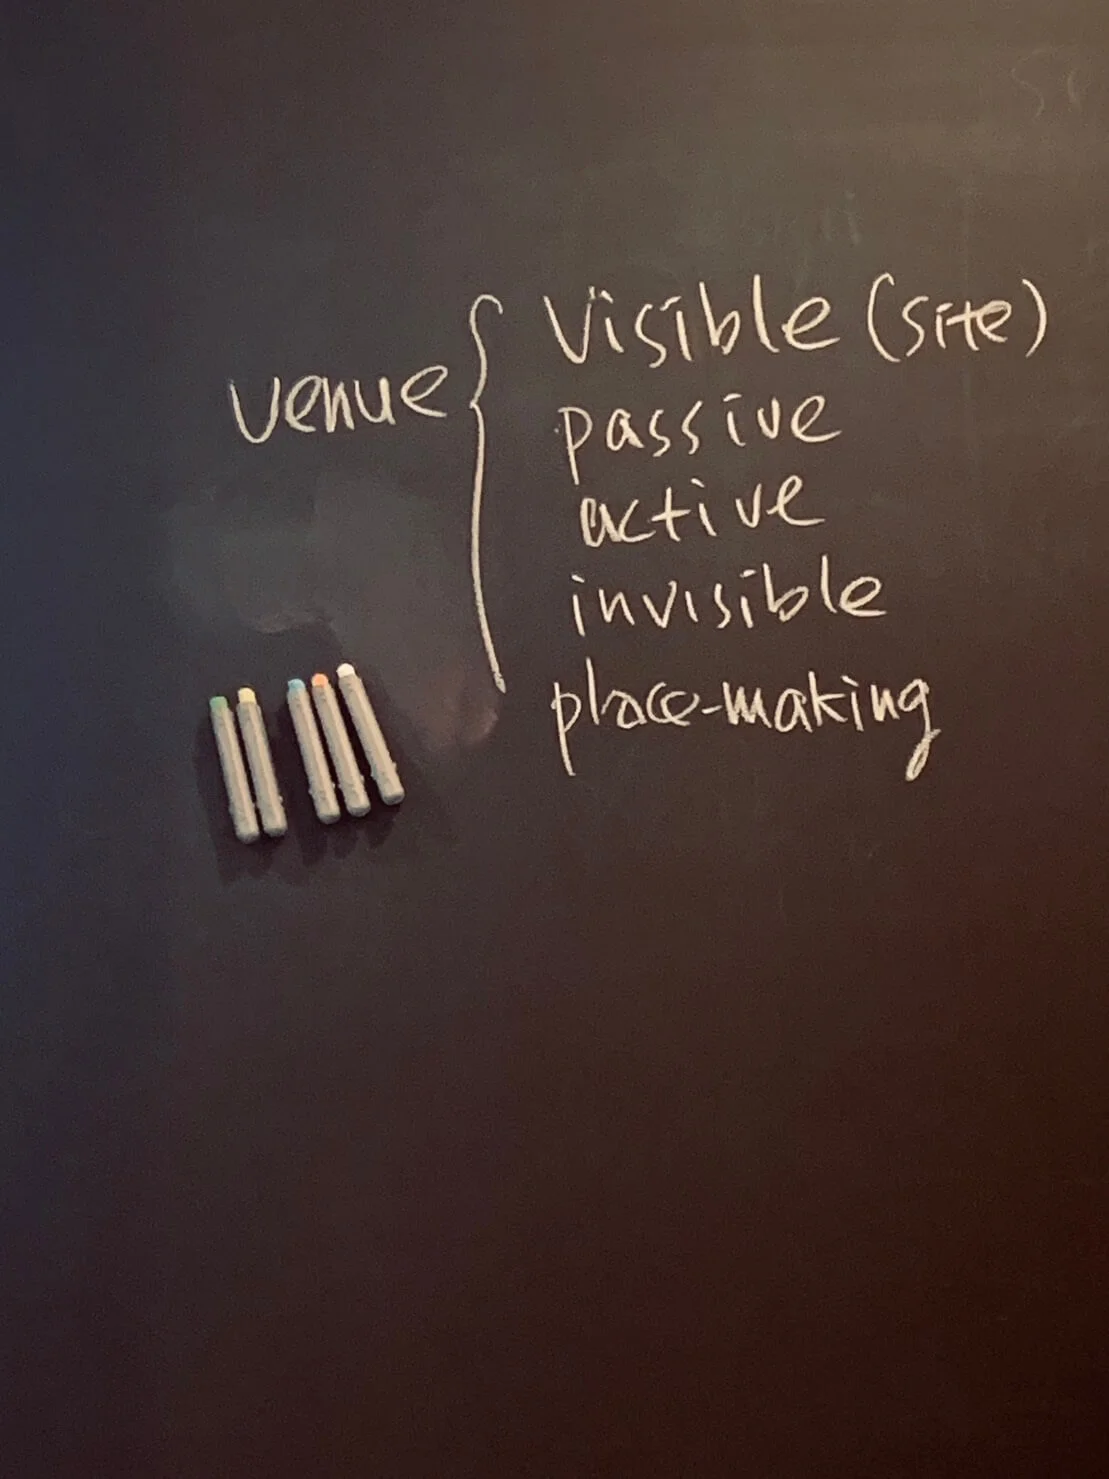 venue { visible (site)
passive
active
invisible
place-making